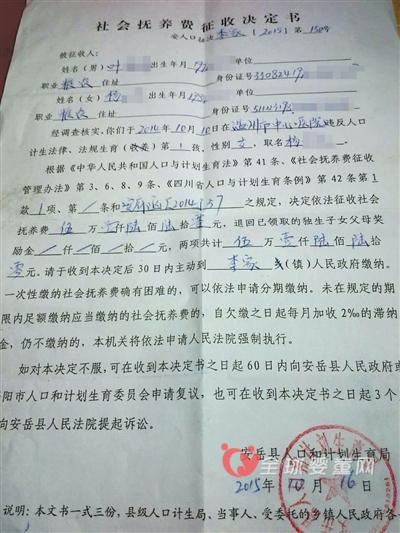 社会抚养费征收决定书
安人口征决 李家 [2015] 第 150号
被征收人:
姓名(男) 叶 出生年月 单位
职业 居民 住址 身份证号 33082419
姓名(女) 杨 出生年月 单位
职业 住址 身份证号
经调查核实,你们于 2014年 10月 10日在温州市中心医院违反人口
计生法律、法规生育(收养)第 1 孩,性别 女,取名 杨
根据《中华人民共和国人口与计划生育法》第 41 条、《社会抚养费征收
管理办法》第 3、6、8、9 条、《四川省人口与计划生育条例》第 42 条第 1
款 1 项、第 / 条和 [2014] 37 之规定,决定依法征收社会
抚养费 伍 万 壹 仟 陆 佰 陆 拾 零 元,退回已领取的独生子女父母奖
励金 / 仟 / 佰 / 拾 / 元,两项共计 伍 万 壹 仟 陆 佰 陆 拾
零 元。请于收到本决定后 30 日内主动到 李家 乡(镇)人民政府缴纳。
一次性缴纳社会抚养费确有困难的,可以依法申请分期缴纳。未在规定的期
限内足额缴纳应当缴纳的社会抚养费的,自欠缴之日起每月加收 2‰的滞纳
金,仍不缴纳的,本机关将依法申请人民法院强制执行。
如对本决定不服,可在收到本决定书之日起 60 日内向安岳县人民政府或
阳市人口和计划生育委员会申请复议,也可在收到本决定书之日起 3 个
向安岳县人民法院提起诉讼。
安岳县人口和计划生育局
2015年 10 月 16 日
全球婴童网
说明:本文书一式三份,县级人口计生局、当事人、受委托的乡镇人民政府各一